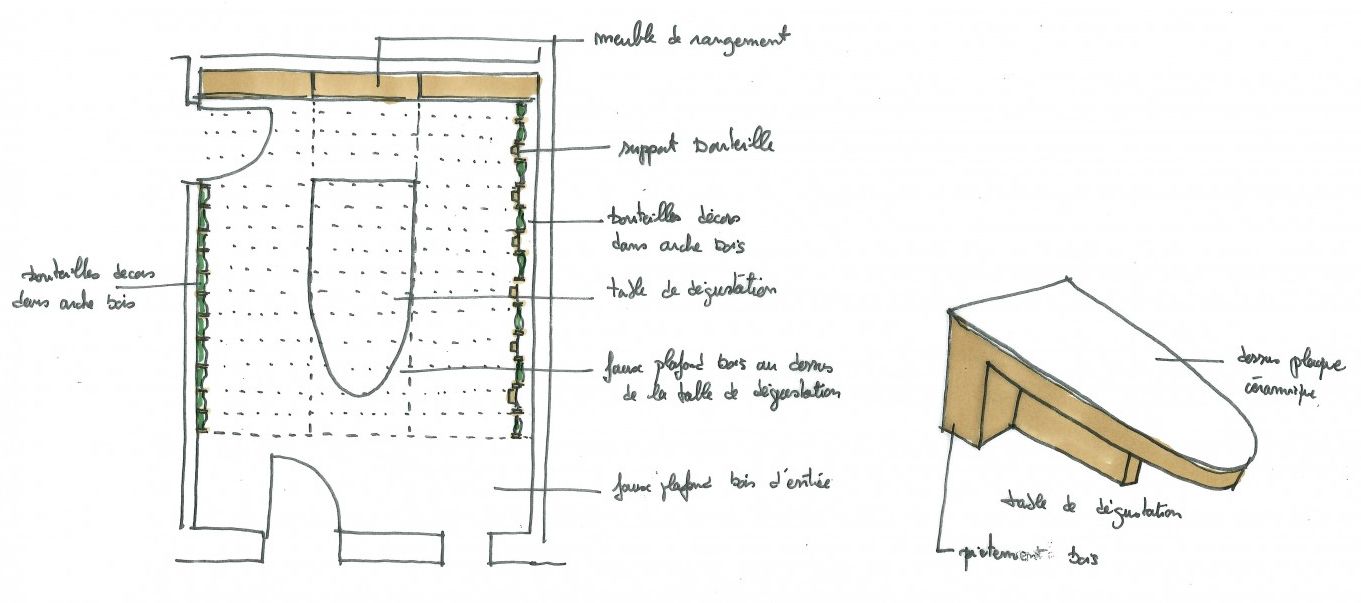 meuble de rangement
support bouteille
bouteilles décors
dans arche bois
bouteilles decors
dans arche bois
table de dégustation
faux plafond bois au dessus
de la table de dégustation
faux plafond bois d'entrée
dessus plaque
céramique
table de dégustation
piètement bois